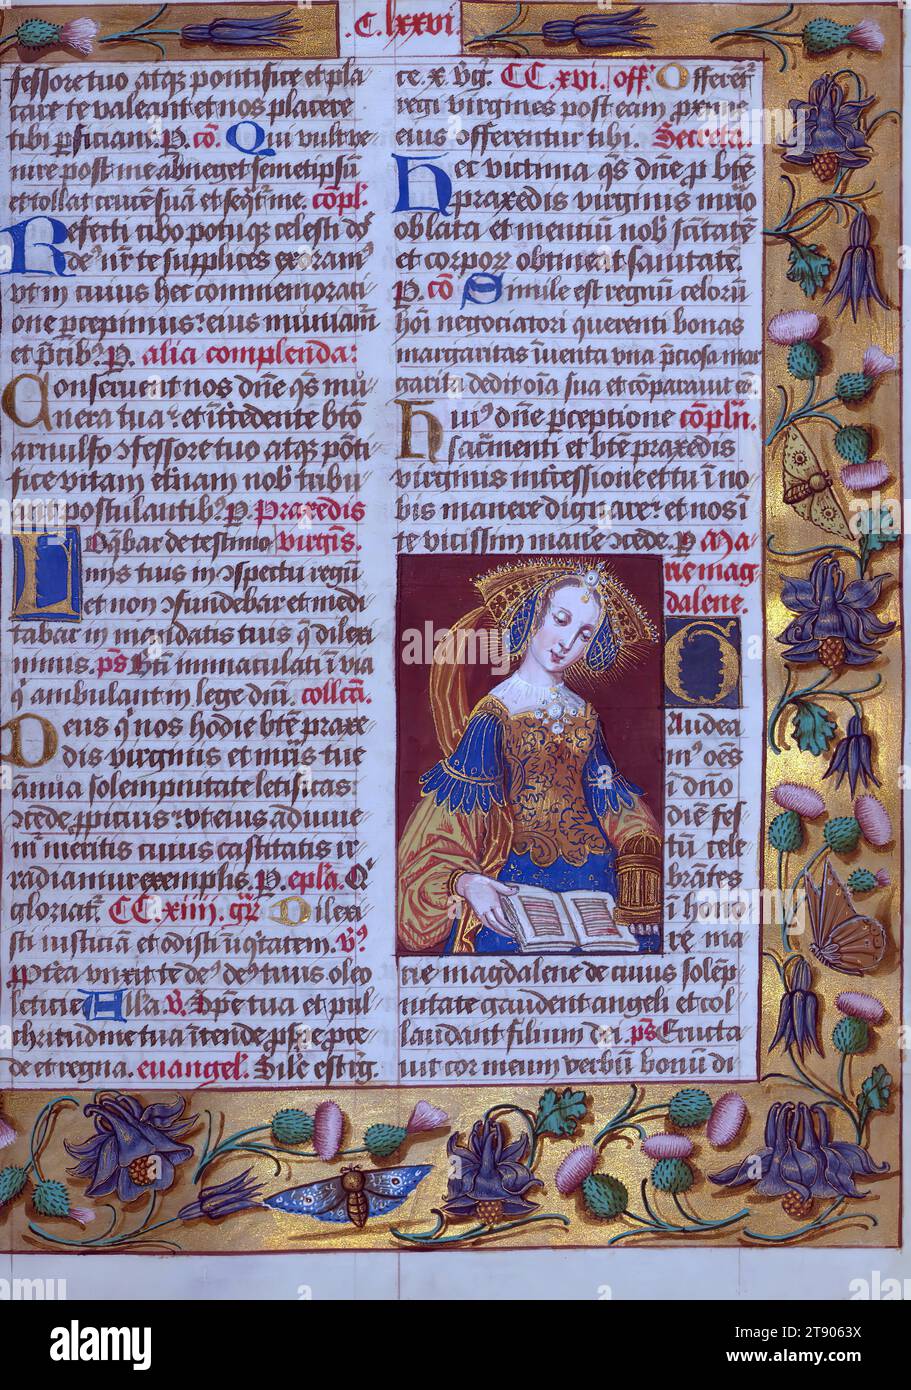 .C. lxxvi
fessore tuo atqꝫ pontifice et pla
care te valeant et nos placere
tibi pficiant. P. cõ. Qui vult ve
nire post me abneget semetipsũ
et tollat crucẽ suã et seqͬt me. cõpl.
Refecti cibo potuqꝫ celesti dˢ
deˢ nr̃ te supplices exoramˢ
vt in cuius hec commemorati
one percepimus: eiˢ muniamͬ
et p̃cibꝫ. P. alia complenda:
Conseruent nos dñe q̃s mu
nera tua: et ĩtercedente btõ
arnulfo ɔfessore tuo atqꝫ põti
fice vitam etnam nobˢ tribu
ant postulantibꝫ. P. Praxedis
Loq̃bar de testimo virgĩs.
niis tuis in ɔspectu regũ
et non ɔfundebar et medi
tabar in mandatis tuis q̃ dilexi
nimis. ps̃ Bt̃i immaculati ĩ via
qͥ ambulant in lege dnĩ. collcã.
Deus qͥ nos hodie bt̃e praxe
dis virginis et mr̃is tue
ãnua solempnitate letificas:
ɔcede ppicius: vt eius adiuue
mͬ meritis cuius castitatis ir
radiamur exemplis. P. epl̃a. Qͥ
gloriatͬ. CC.xiiij. gr̃. Dilexi
sti iusticiã et odisti ĩiqͥtatem. v̾s
Ppt̃ea vnxit te deˢ deˢ tuus oleo
leticie Alla. v̾. Spẽ tua et pul
chritudine tua ĩtende pspe pce
de et regna. euangel. Sil̃e est rg̃
ce. x. vg̃. CC.xvi. off. Offerẽtͬ
regi virgines post eam pxime
eius offerentur tibi. Secreta.
Hec victima q̃s dñe p bt̃e
praxedis virginis mr̃io
oblata et mentiũ nobˢ sc̃itatẽ
et corporꝝ obtineat sanitatẽ.
P. cõ Simile est regnũ celorũ
hoĩ negociatori querenti bonas
margaritas ĩuenta vna p̃ciosa mar
garita dedit oĩa sua et cõparauit eã
Huiˢ dñe perceptione cõpln̄.
sac̃menti et bt̃e praxedis
virginis int̃cessione et tu ĩ no
bis manere dignare: et nos ĩ
te vicissim manẽ ɔcede. P. Ma
rie mag
dalene.
Gaudea
mˢ oẽs
ĩ dño
diẽ fes
tũ cele
brãtes
ĩ hono
re ma
rie magdalene de cuius solẽp
nitate gaudent angeli et col
laudant filium dei. ps̃ Eructa
uit cor meum verbũ bonũ di
alamy
Image ID: 2T9063X
www.alamy.com